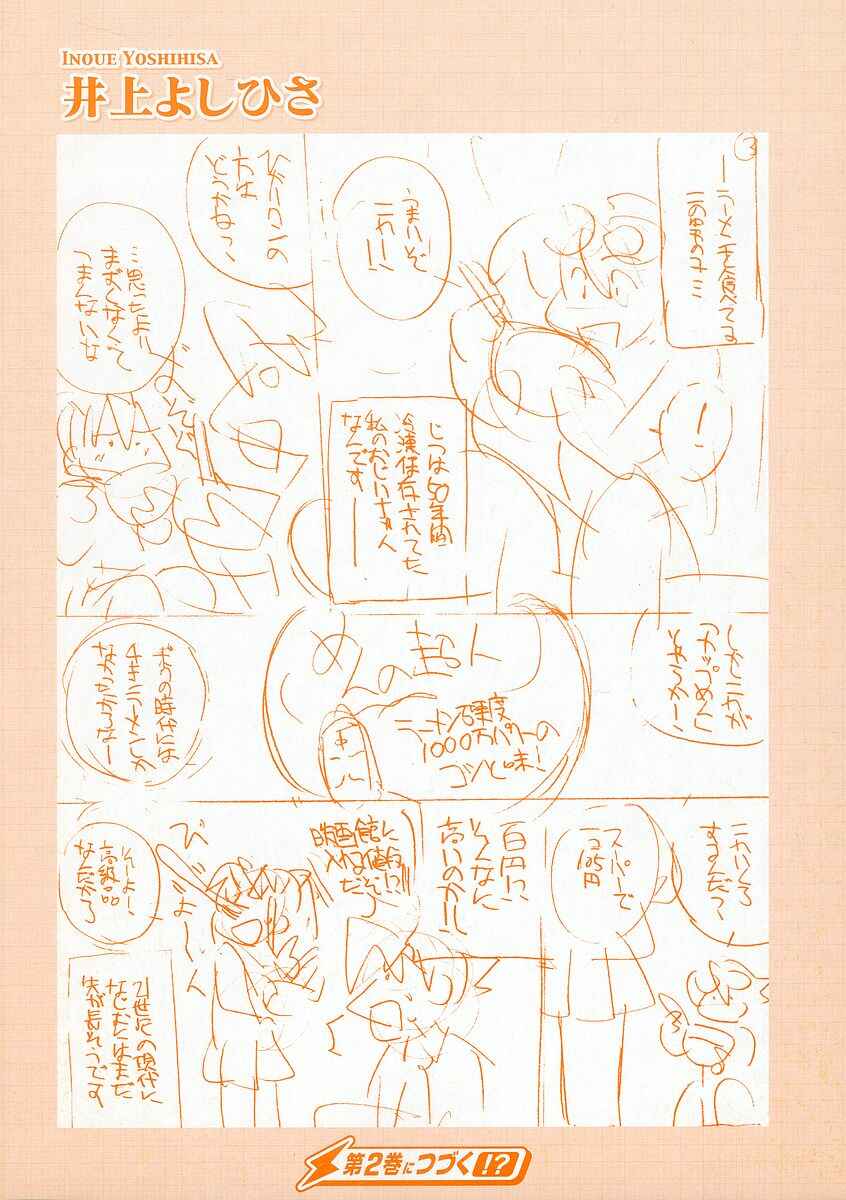 INOUE YOSHIHISA
井上よしひさ
3
ーラーメンを食べてる
!
うまいぞ
これ!!
じつは50年間
冷凍保存されてた
私のおじいちゃん
なんです——
方は
どうかねっ
…思ったより
まずくなくて
つまんないな
しかしこれが
カップめんと
めんの超人
ラーメン硬度
1000万パワーの
コシと味!
ボクの時代には
チキラーメンしか
なかったからなー
これいくら
するんだっ
スーパーで
一コ105円
百円!?
そんなに
高いのか!!
映画館に
入れる値段
だぞっ
そーよー!
高級品
なんだから
21世紀の現代に
なじむにはまだ
先が長そうです
第2巻につづく!?